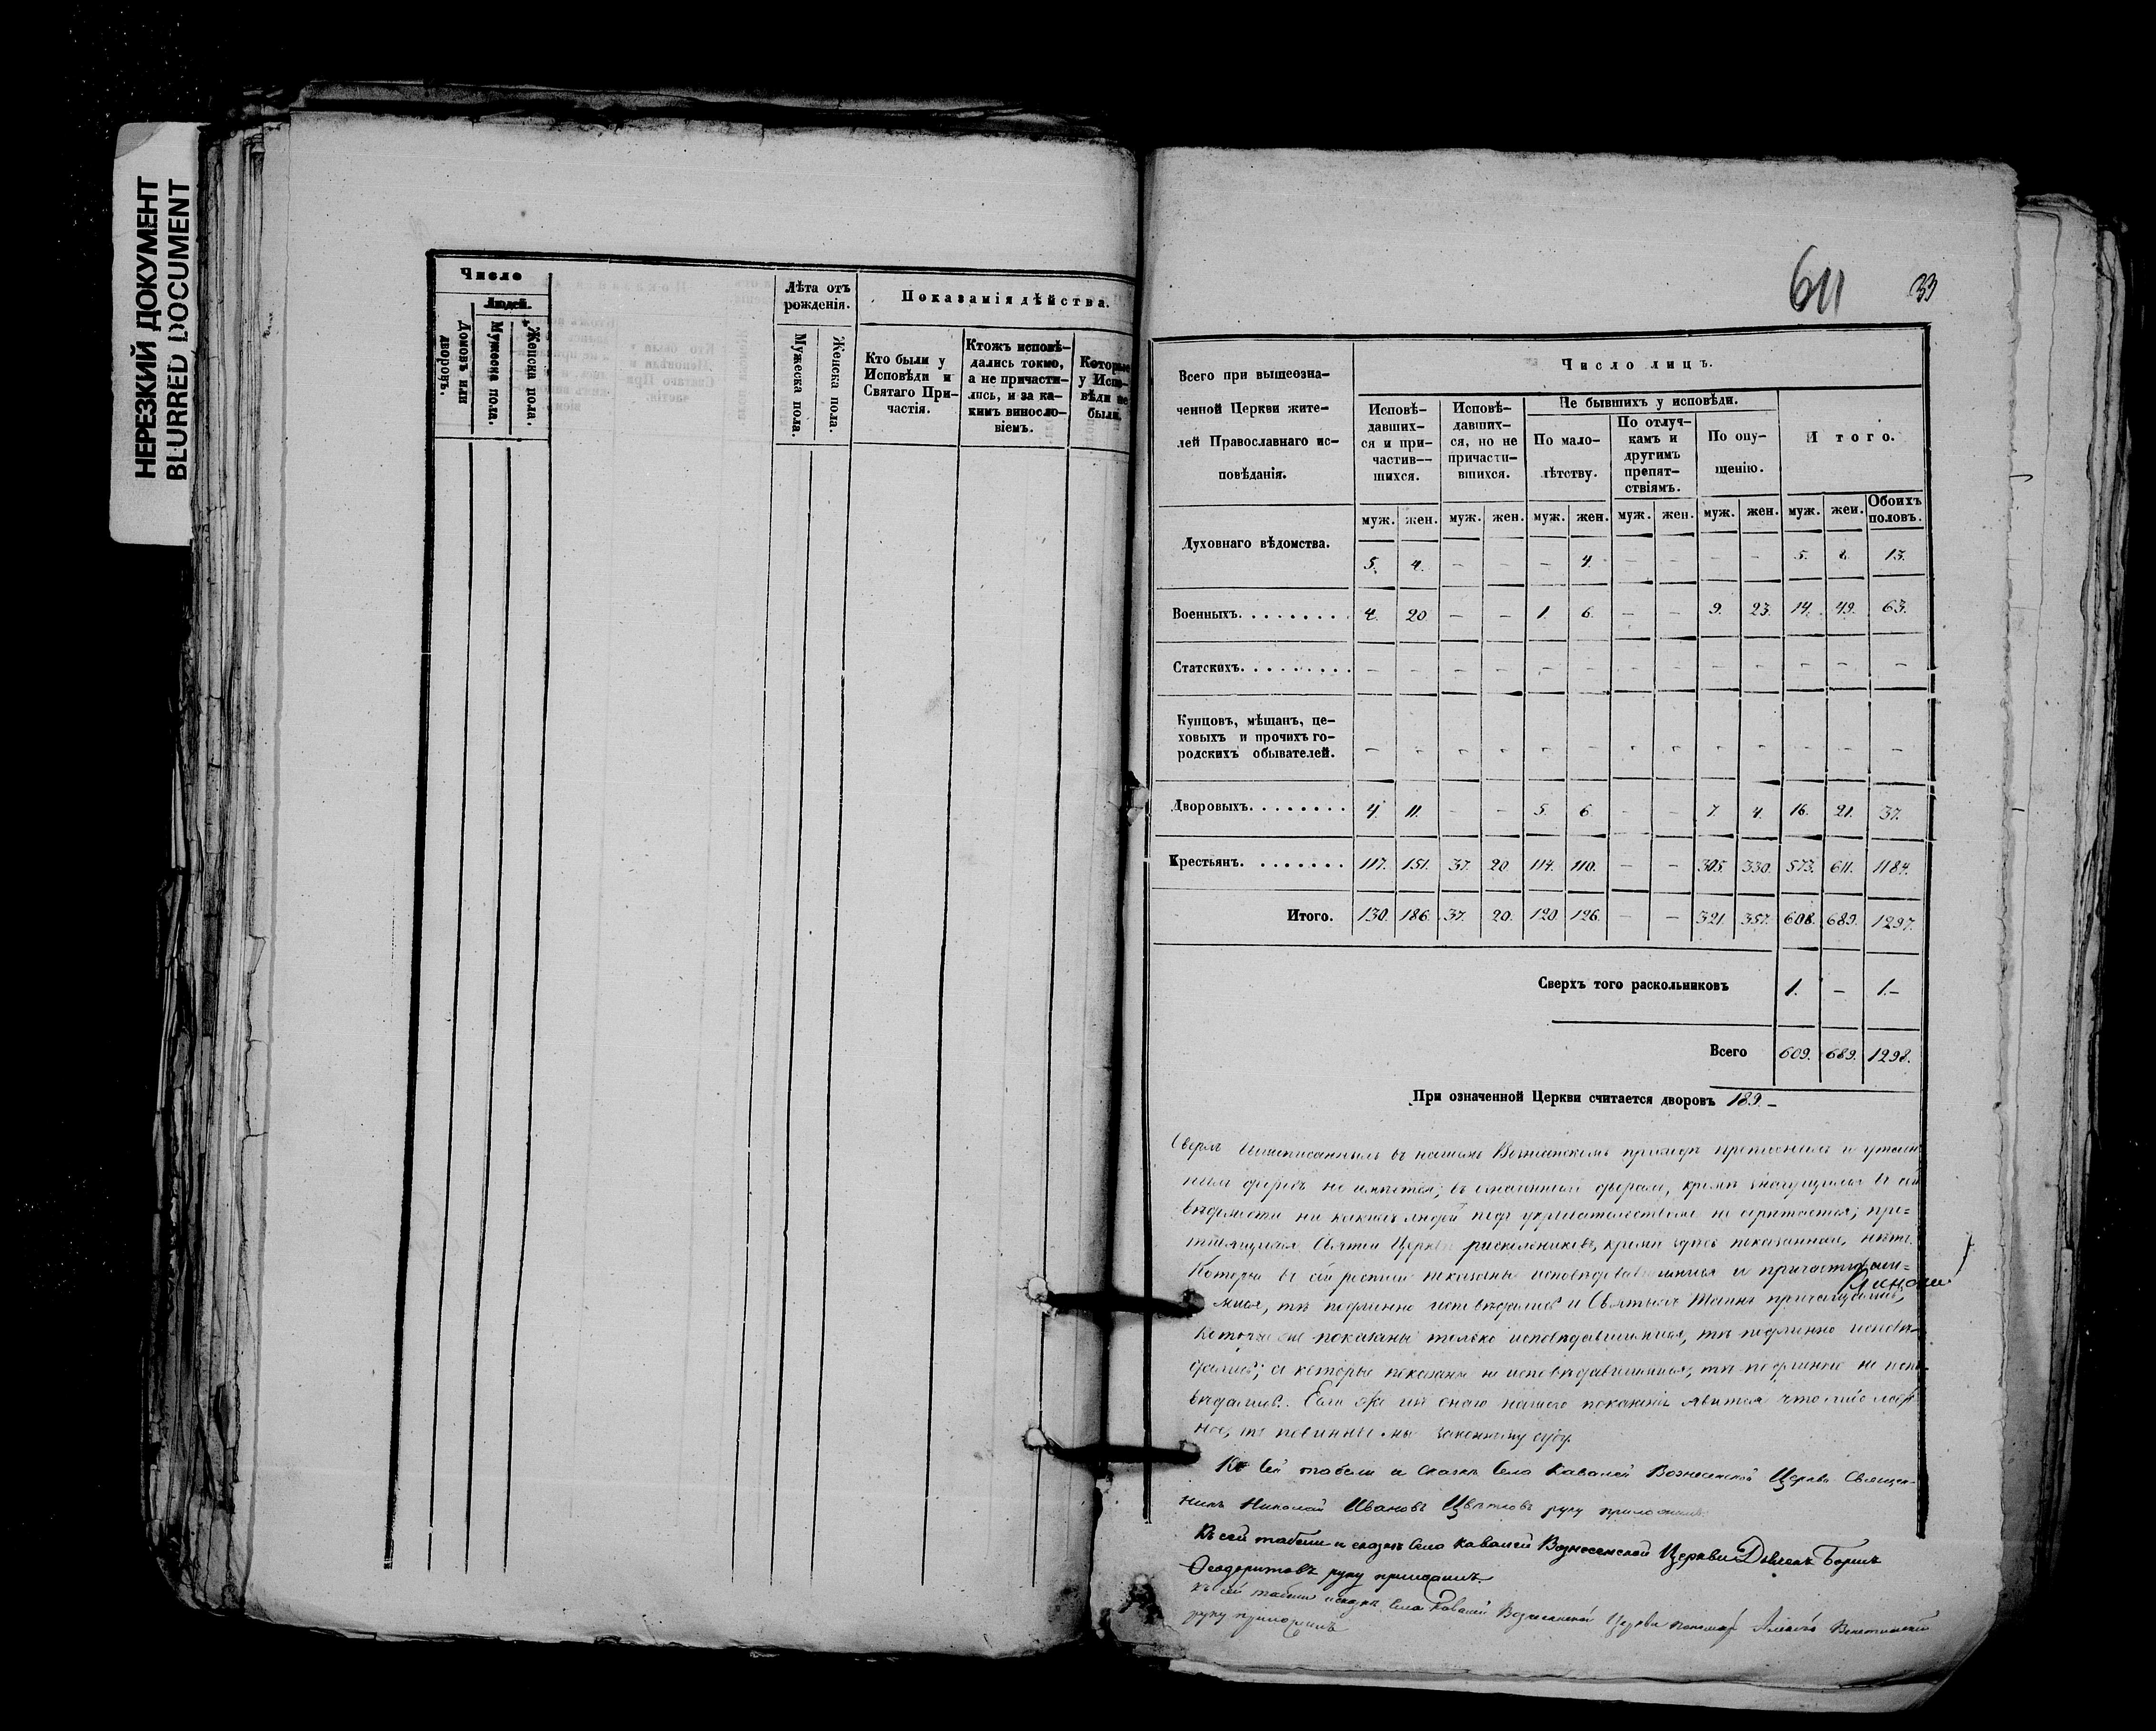 НЕРЕЗКИЙ ДОКУМЕНТ
BLURRED DOCUMENT
Число
Людей.
Домовъ или дворовъ.
Мужеска пола.
Женска пола.
Лѣта отъ рожденія.
Мужеска пола.
Женска пола.
Показанія дѣйства.
Кто были у Исповѣди и Святаго Причастія.
Ктожъ исповѣ-
дались токмо,
а не причасти-
лись, и за ка-
кимъ виносло-
віемъ.
Которые
у Испо-
вѣди не
были.
611 33
Всего при вышеозна-
ченной Церкви жите-
лей Православнаго ис-
повѣданія.
Число лицъ.
Исповѣ-
давших-
ся и при-
частив-
шихся.
Исповѣ-
давших-
ся, но не
причасти-
вшихся.
Не бывшихъ у исповѣди.
По мало-
лѣтству.
По отлуч-
камъ и
другимъ
препят-
ствіямъ.
По опу-
щенію.
Итого.
муж. жен. муж. жен. муж. жен. муж. жен. муж. жен. муж. жен. Обоихъ половъ.
Духовнаго вѣдомства. 5. 4. – – – 4. – – – – 5. 8. 13.
Военныхъ. 4. 20 – – 1. 6. – – 9. 23. 14. 49. 63.
Статскихъ. – – – – – – – – – – – – –
Купцовъ, мѣщанъ, це-
ховыхъ и прочихъ го-
родскихъ обывателей. – – – – – – – – – – – – –
Дворовыхъ. 4. 11. – – 5. 6. – – 7. 4. 16. 21. 37.
Крестьянъ. 117. 151. 37. 20. 114. 110. – – 305. 330. 573. 611. 1184.
Итого. 130. 186. 37. 20. 120. 126. – – 321. 357. 608. 689. 1297.
Сверхъ того раскольниковъ 1. – 1.–
Всего 609. 689. 1298.
При означенной Церкви считается дворовъ 189.–
Сверхъ вышеписанныхъ въ нашемъ Вознесенскомъ приходѣ
кромѣ значущихся въ сей
вѣдомости ни какихъ людей подъ укрывательствомъ не
Святой Церкви раскольниковъ, кромѣ здѣсь показанныхъ, нѣтъ.
Которые въ сей росписи показаны исповѣдавшимися и причастивши-
мися, тѣ подлинно исповѣдались и Святыхъ Таинъ причащались,
Которые показаны только исповѣдавшимися, тѣ подлинно исповѣ-
дались; а которые показаны не исповѣдавшимися, тѣ подлинно не испо-
вѣдались. Если же изъ сего нашего показанія явится что либо лож-
ное, то повинны мы законному суду.
Къ сей табели и сказкѣ Села Ковалей Вознесенской Церкви Священ-
никъ Николай Ивановъ Цвѣтковъ руку приложилъ.
Къ сей табели и сказкѣ Села Ковалей Вознесенской Церкви Дьячекъ Борисъ
Ѳеодоритовъ руку приложилъ.
Къ сей табели и сказкѣ Села Ковалей Вознесенской Церкви пономарь
руку приложилъ